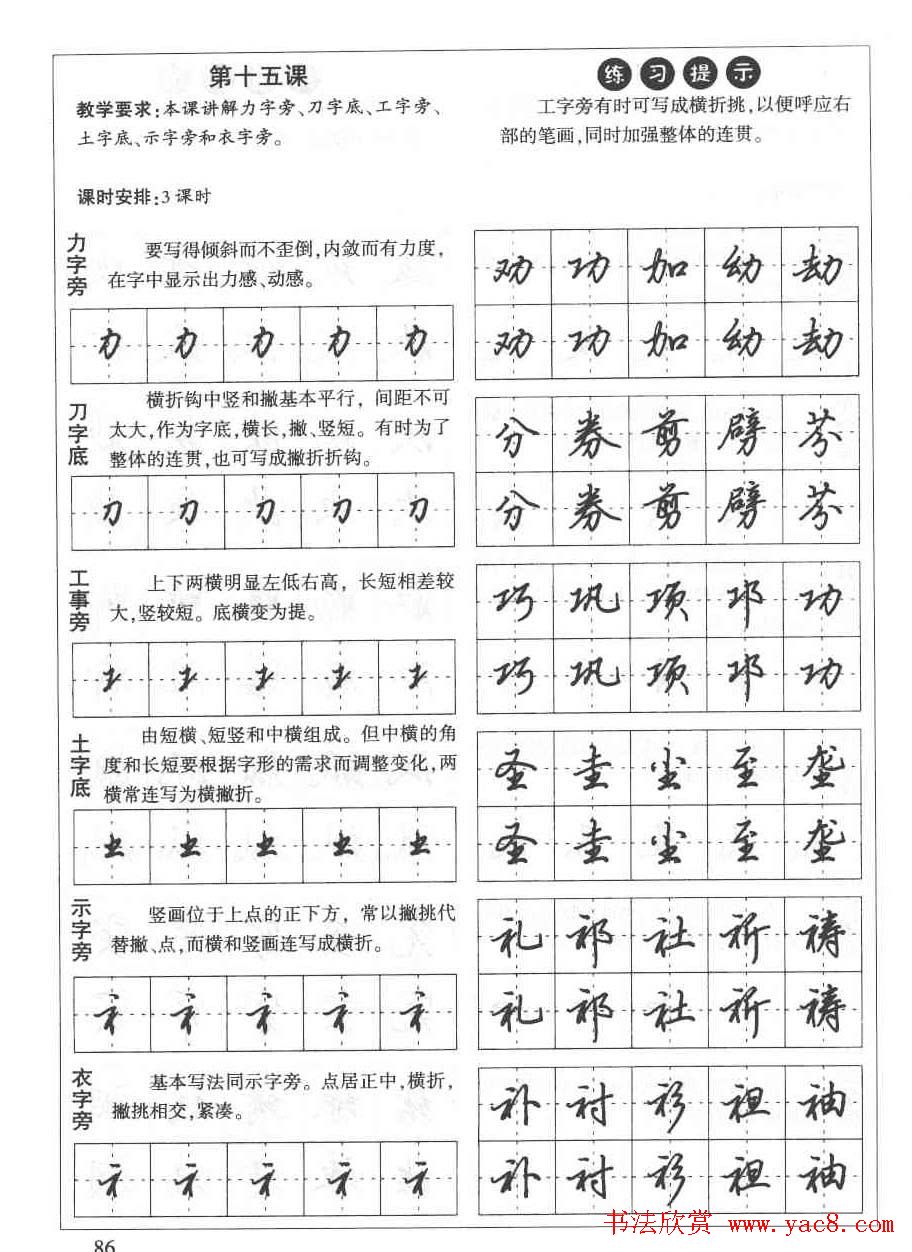 第十五课
教学要求:本课讲解力字旁、刀字底、工字旁、
土字底、示字旁和衣字旁。
课时安排:3课时
练习提示
工字旁有时可写成横折挑,以便呼应右
部的笔画,同时加强整体的连贯。
力字旁
要写得倾斜而不歪倒,内敛而有力度,
在字中显示出力感、动感。
力 力 力 力 力
劝 功 加 幼 劫
劝 功 加 幼 劫
刀字底
横折钩中竖和撇基本平行，间距不可
太大,作为字底,横长,撇、竖短。有时为了
整体的连贯,也可写成撇折折钩。
刀 刀 刀 刀 刀
分 券 剪 劈 芬
分 券 剪 劈 芬
工事旁
上下两横明显左低右高，长短相差较
大,竖较短。底横变为提。
工 工 工 工 工
巧 巩 项 邛 功
巧 巩 项 邛 功
土字底
由短横、短竖和中横组成。但中横的角
度和长短要根据字形的需求而调整变化,两
横常连写为横撇折。
土 土 土 土 土
圣 圭 尘 至 垄
圣 圭 尘 至 垄
示字旁
竖画位于上点的正下方，常以撇挑代
替撇、点,而横和竖画连写成横折。
礻 礻 礻 礻 礻
礼 祁 社 祈 祷
礼 祁 社 祈 祷
衣字旁
基本写法同示字旁。点居正中,横折,
撇挑相交,紧凑。
衤 衤 衤 衤 衤
补 衬 衫 袒 袖
补 衬 衫 袒 袖
86
书法欣赏 www.yac8.com